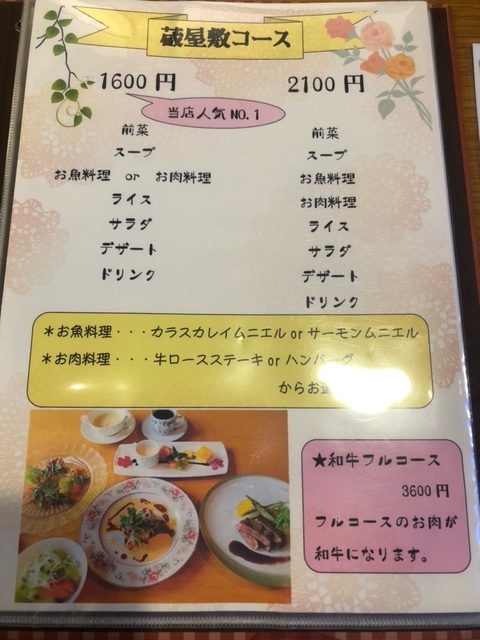 蔵屋敷コース
1600 円
2100 円
当店人気 NO.1
前菜
スープ
お魚料理 or お肉料理
ライス
サラダ
デザート
ドリンク
前菜
スープ
お魚料理
お肉料理
ライス
サラダ
デザート
ドリンク
＊お魚料理・・・カラスカレイムニエル or サーモンムニエル
＊お肉料理・・・牛ロースステーキ or ハンバーグ
からお
★和牛フルコース
3600 円
フルコースのお肉が
和牛になります。